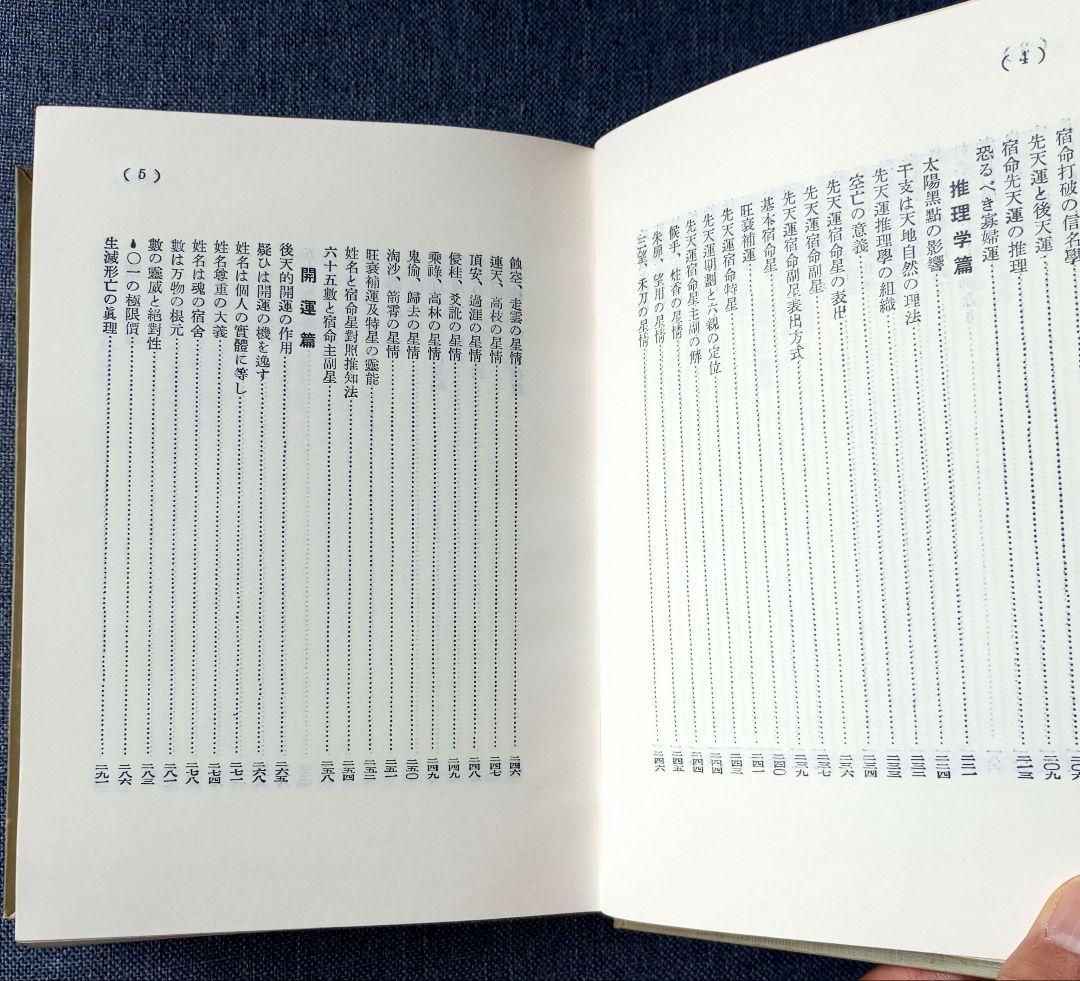 (4)
宿命打破の信名學……二〇六
先天運と後天運……二〇九
宿命先天運の推理……二一三
恐るべき寡婦運
推理学篇
太陽黑點の影響……二二一
干支は天地自然の理法……二二四
先天運推理學の組織
空亡の意義
先天運宿命星の表出
先天運宿命副星
先天運宿命副星表出方式
基本宿命星……二四〇
旺衰補運……二四一
先天運宿命特星……二四三
先天運期劃と六親の定位……二四四
先天運宿命星主副の解……二四四
候手、性香の星情……二四五
朱屏、望用の星情……二四六
禾刀の星情……二四六
(5)
蝕空、走雲の星情……二四六
連天、高枝の星情……二四七
頂安、過涯の星情……二四八
爻訛の星情……二四九
乘祿、高林の星情……二四九
鬼偷、歸去の星情……二五〇
淘沙、箭霄の星情……二五一
旺衰補運及特星の靈能……二五二
姓名と宿命星對照推知法……二五四
六十五數と宿命主副星……二五八
開運篇
後天的開運の作用……二六五
疑ひは開運の機を逸す……二六八
姓名は個人の實體に等し……二七一
姓名尊重の大義……二七四
姓名は魂の宿舍……二七八
數は万物の根元……二八二
數の靈威と絕對性……二八三
〇一の極限價……二八六
生滅形亡の眞理……二九一